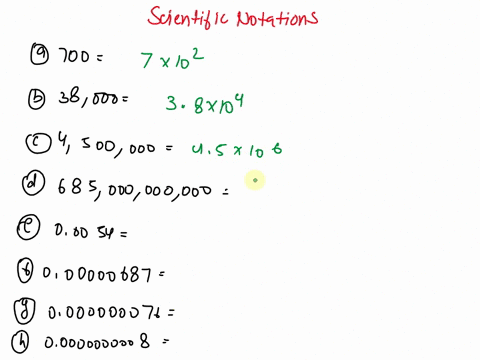 Scientific Notations
(a) 700 = 7 × 10²
(b) 38,000 = 3.8×10⁴
(c) 4,500,000 = 4.5 × 10⁶
(d) 685,000,000,000 =
(e) 0.0054 =
(f) 0.00000687 =
(g) 0.000000076 =
(h) 0.0000000008 =